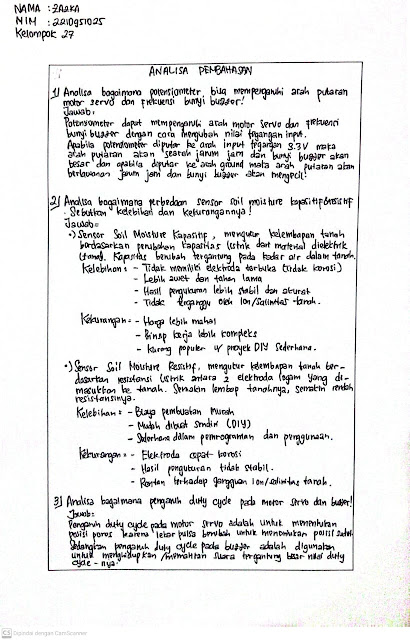 NAMA : ZASKA
NIM : 2210951025
Kelompok 27
ANALISA PEMBAHASAN
1) Analisa bagaimana potensiometer bisa mempengaruhi arah putaran
motor servo dan frekuensi bunyi buzzer!
Jawab:
Potensiometer dapat mempengaruhi arah motor servo dan frekuensi
bunyi buzzer dengan cara mengubah nilai tegangan input.
Apabila potensiometer diputar ke arah input tegangan 3.3V maka
arah putaran akan searah jarum jam dan bunyi buzzer akan
besar dan apabila diputar ke arah ground maka arah putaran akan
berlawanan jarum jam dan bunyi buzzer akan mengecil!
2) Analisa bagaimana perbedaan sensor soil moisture kapasitif & resistif
. Sebutkan kelebihan dan kekurangannya!
Jawab:
•) Sensor Soil Moisture Kapasitif, mengukur kelembapan tanah
berdasarkan perubahan kapasitas listrik dari material dielektrik
(tanah). Kapasitas berubah tergantung pada kadar air dalam tanah.
Kelebihan: - Tidak memiliki elektroda terbuka (tidak korosi)
- Lebih awet dan tahan lama
- Hasil pengukuran lebih stabil dan akurat
- Tidak terganggu oleh ion/salinitas tanah.
Kekurangan: - Harga lebih mahal
- Prinsip kerja lebih kompleks
- Kurang populer u/ proyek DIY sederhana.
•) Sensor Soil Moisture Resistif, mengukur kelembapan tanah ber-
dasarkan resistansi listrik antara 2 elektroda logam yang di-
masukkan ke tanah. Semakin lembap tanahnya, semakin rendah
resistansinya.
Kelebihan: - Biaya pembuatan murah
- Mudah dibuat sendiri (DIY)
- Sederhana dalam pemrograman dan penggunaan.
Kekurangan: - Elektroda cepat korosi
- Hasil pengukuran tidak stabil.
- Rentan terhadap gangguan ion/salinitas tanah.
3) Analisa bagaimana pengaruh duty cycle pada motor servo dan buzzer!
Jawab:
Pengaruh duty cycle pada motor servo adalah untuk menentukan
posisi poros karena lebar pulsa berubah untuk menentukan posisi
Sedangkan pengaruh duty cycle pada buzzer adalah digunakan
untuk menghidupkan/mematikan suara tergantung besar nilai duty
cycle-nya.
CS Dipindai dengan CamScanner